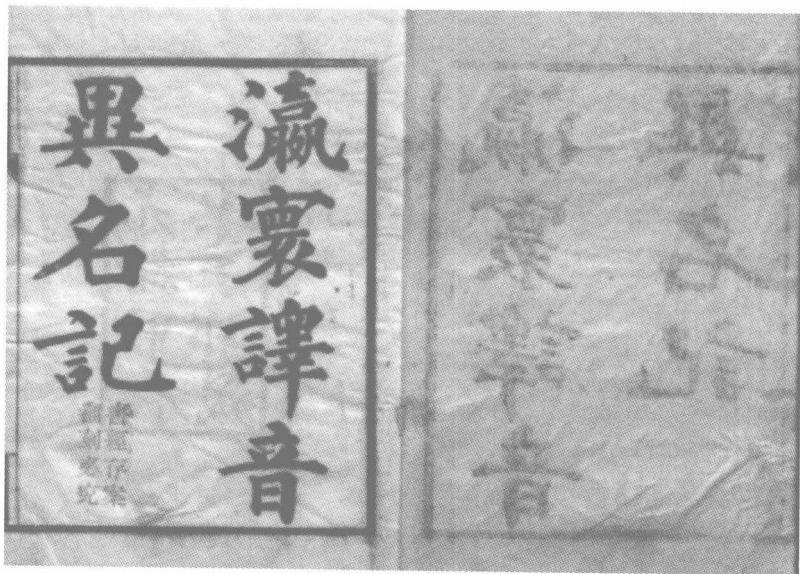 瀛寰譯音
異名記
書經存案
翻刻必究